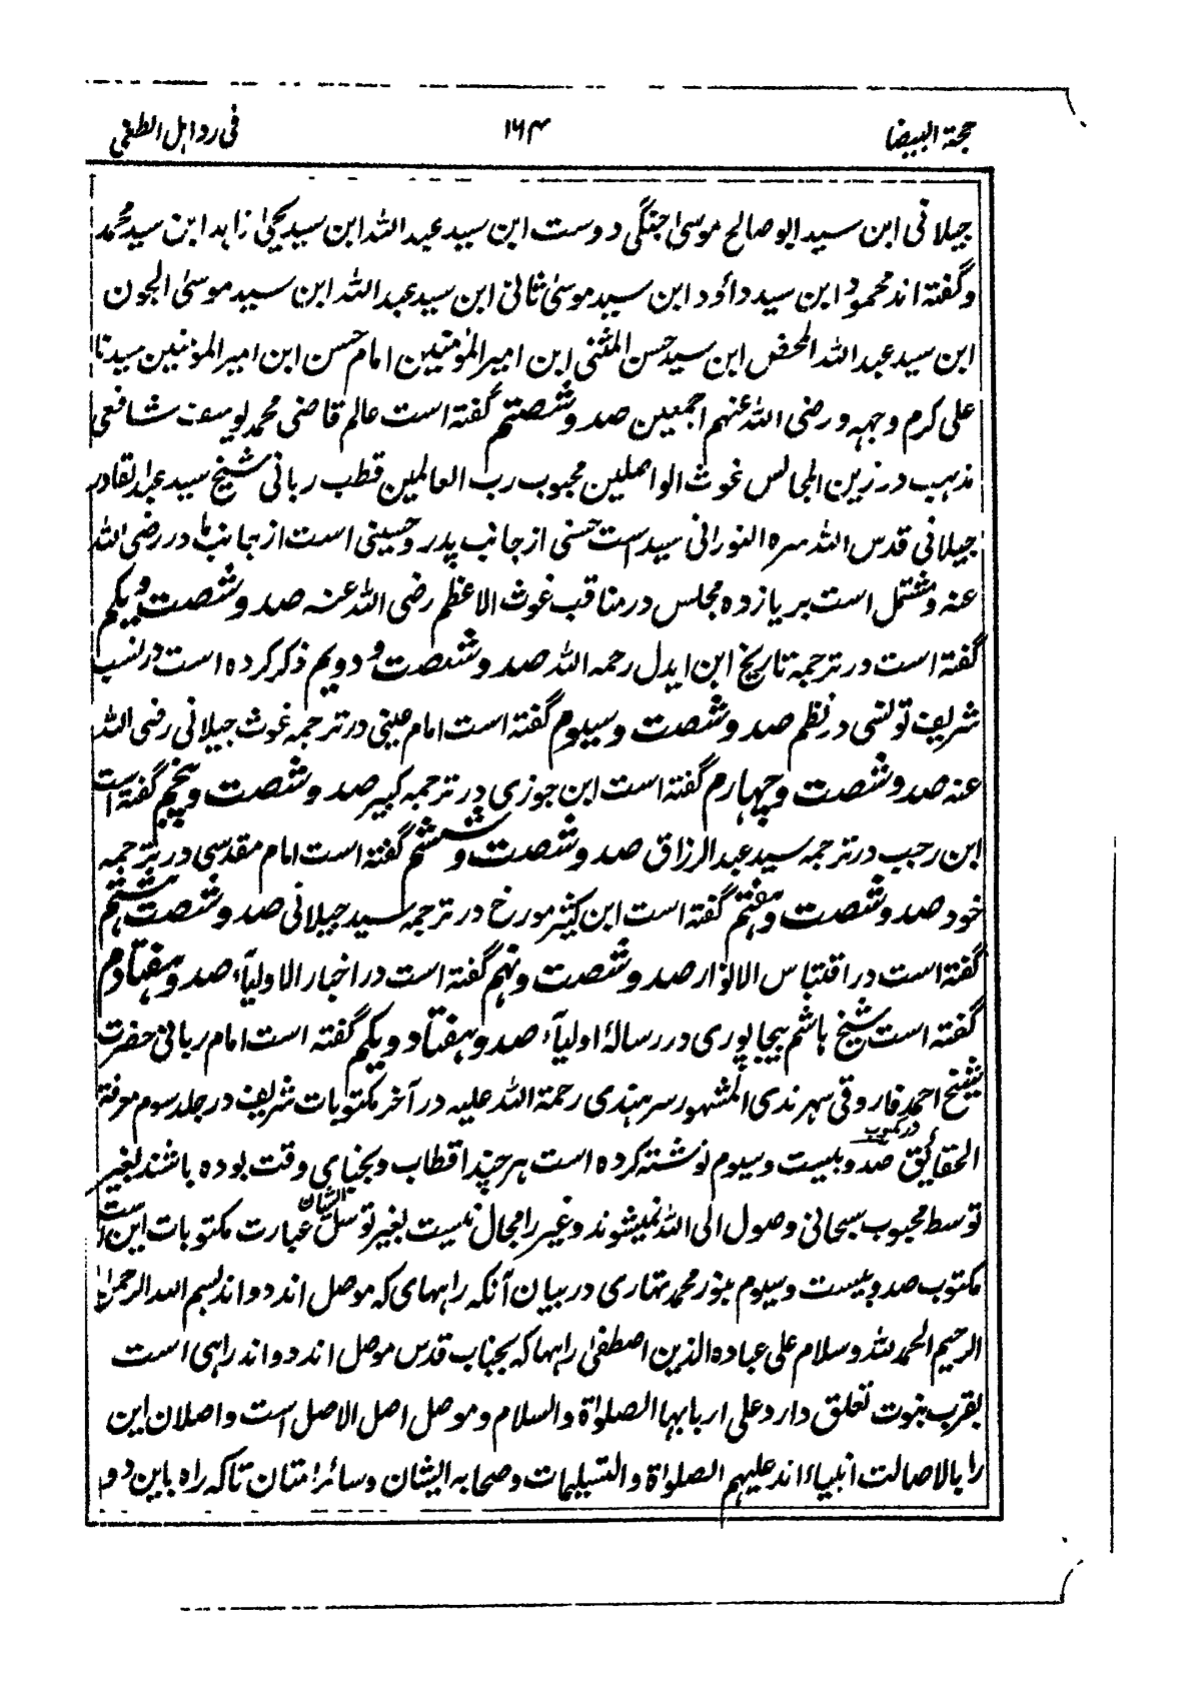 حجة البیضا ۱۶۴ فی رد اہل الطغی
جیلانی ابن سید ابو صالح موسیٰ جنگی دوست ابن سید عبد اللہ ابن سید یحییٰ زاہد ابن سید محمد
و گفتہ اند محمود ابن سید داؤد ابن سید موسیٰ ثانی ابن سید عبد اللہ ابن سید موسیٰ الجون
ابن سید عبد اللہ المحض ابن سید حسن المثنی ابن امیر المؤمنین امام حسن ابن امیر المؤمنین سیدنا
علی کرم وجہہ و رضی اللہ عنہم اجمعین صد و شصتم گفتہ است عالم قاضی محمد یوسف شافعی
مذہب در زین المجالس غوث الواصلین محبوب رب العالمین قطب ربانی شیخ سید عبد القادر
جیلانی قدس اللہ سرہ النورانی سید است حسنی از جانب پدر و حسینی است از جانب مادر رضی اللہ
عنہ و مشتمل است بر یازدہ مجلس در مناقب غوث الاعظم رضی اللہ عنہ صد و شصت و یکم
گفتہ است در ترجمہ تاریخ ابن ایدل رحمہ اللہ صد و شصت و دویم ذکر کردہ است در نسب
شریف تونسی در نظم صد و شصت و سیوم گفتہ است امام عینی در ترجمہ غوث جیلانی رضی اللہ
عنہ صد و شصت و چہارم گفتہ است ابن جوزی در ترجمہ کبیر صد و شصت و پنجم گفتہ است
ابن رجب در ترجمہ سید عبد الرزاق صد و شصت و ششم گفتہ است امام مقدسی در ترجمہ
خود صد و شصت و ہفتم گفتہ است ابن کثیر مورخ در ترجمہ سید جیلانی صد و شصت ہشتم
گفتہ است در اقتباس الانوار صد و شصت و نہم گفتہ است در اخبار الاولیآء صد و ہفتادم
گفتہ است شیخ ہاشم بیجاپوری در رسالۂ اولیآء صد و ہفتاد و یکم گفتہ است امام ربانی حضرت
شیخ احمد فاروقی سہرندی المشہور سرہندی رحمۃ اللہ علیہ در آخر مکتوبات شریف در جلد سوم معرفۃ
الحقائق در مکتوب صد و بیست و سیوم نوشتہ کردہ است ہر چند اقطاب و نجبای وقت بودہ باشند بغیر
توسط محبوب سبحانی وصول الی اللہ نمیشوند و غیر را مجال نیست بغیر توسل ایشان عبارت مکتوبات این است
مکتوب صد و بیست و سیوم بنور محمد تہاری در بیان آنکہ راہہای کہ موصل اند دو اند بسم اللہ الرحمن
الرحیم الحمد للہ و سلام علی عبادہ الذین اصطفیٰ راہہا کہ بجناب قدس موصل اند دو اند راہی است
بقرب نبوت تعلق دارد علی اربابہا الصلواۃ والسلام و موصل اصل الاصل است و اصلان این
را بالاصالت انبیاء اند علیہم الصلواۃ والتسلیمات و صحابہ ایشان و سائر امتان تا کہ راہ باین دو